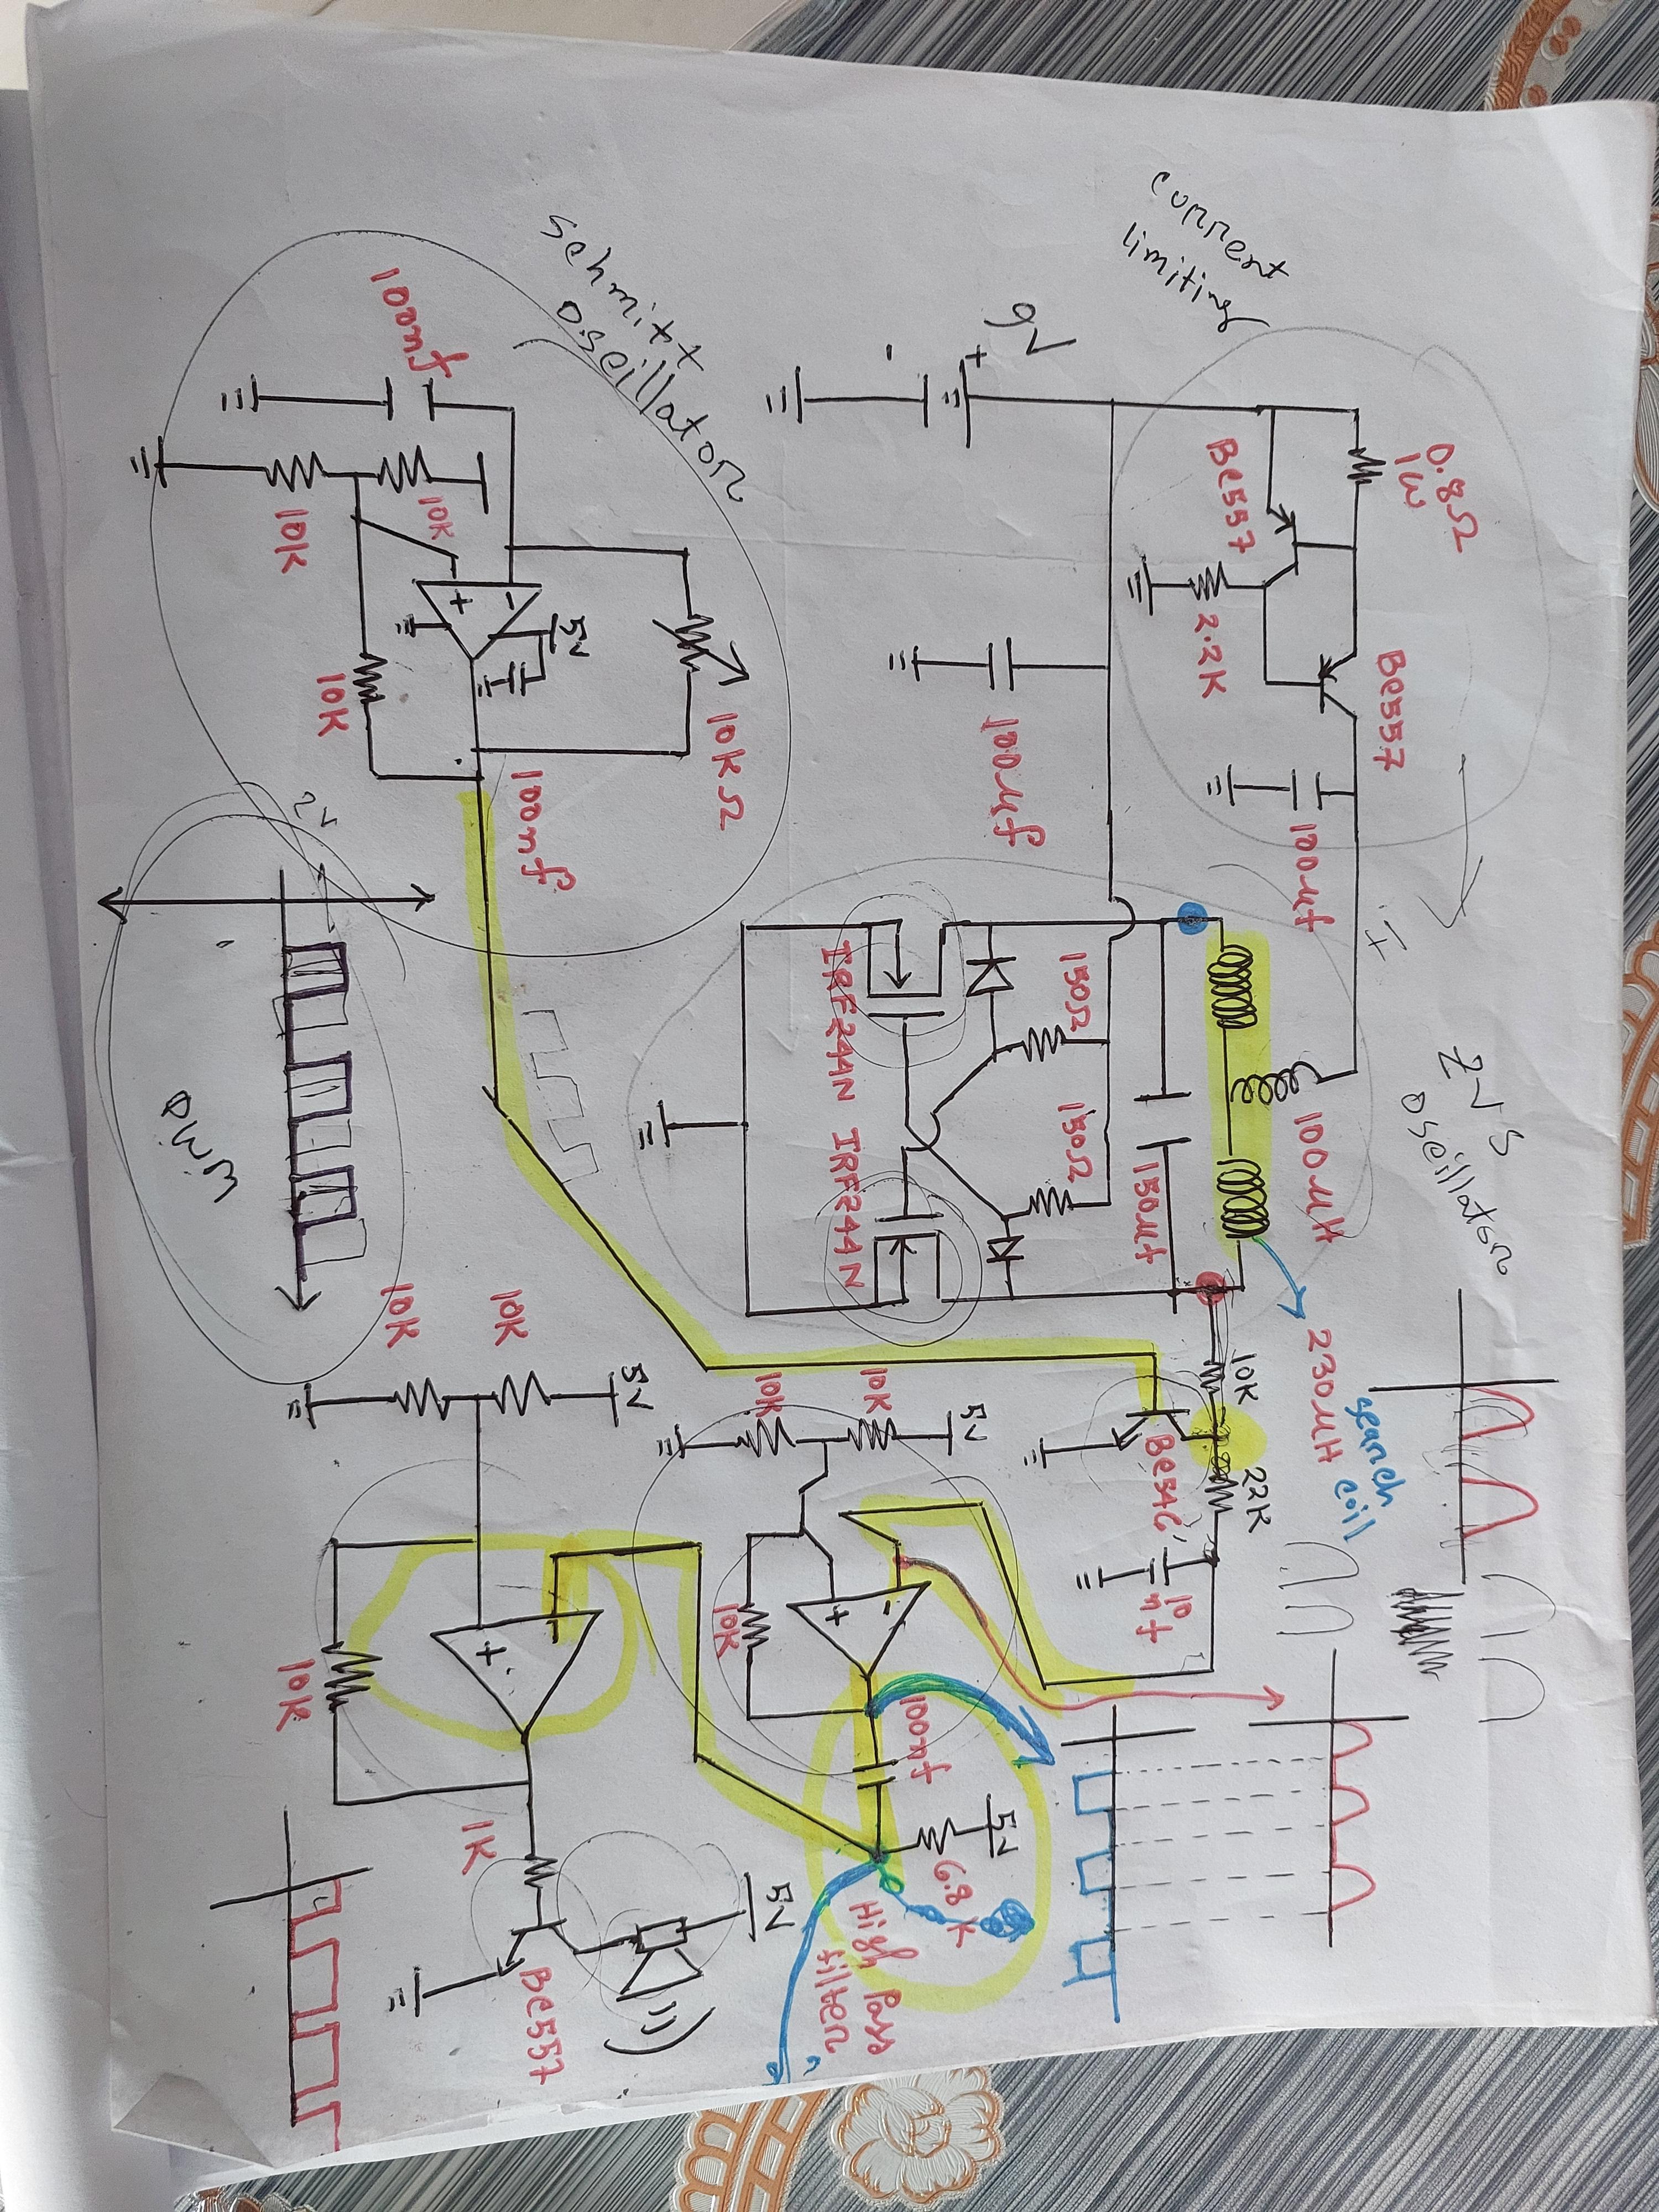 current
limiting
0.8Ω
1W
Bc557
2.2K
Bc557
100uf
I
ZVS
oscillator
100uH
230uH
search
coil
9V
+
-
100uf
150Ω
150Ω
150uf
IRFZ44N
IRFZ44N
10K
22K
Bc546
10
nf
schmitt
oscillator
100nf
10K
10K
-
+
5V
10K
10KΩ
100nf
2V
PWM
5V
10K
10K
5V
10K
10K
-
+
10K
100nf
5V
6.8K
High Pass
filter
+
10K
1K
5V
Bc557